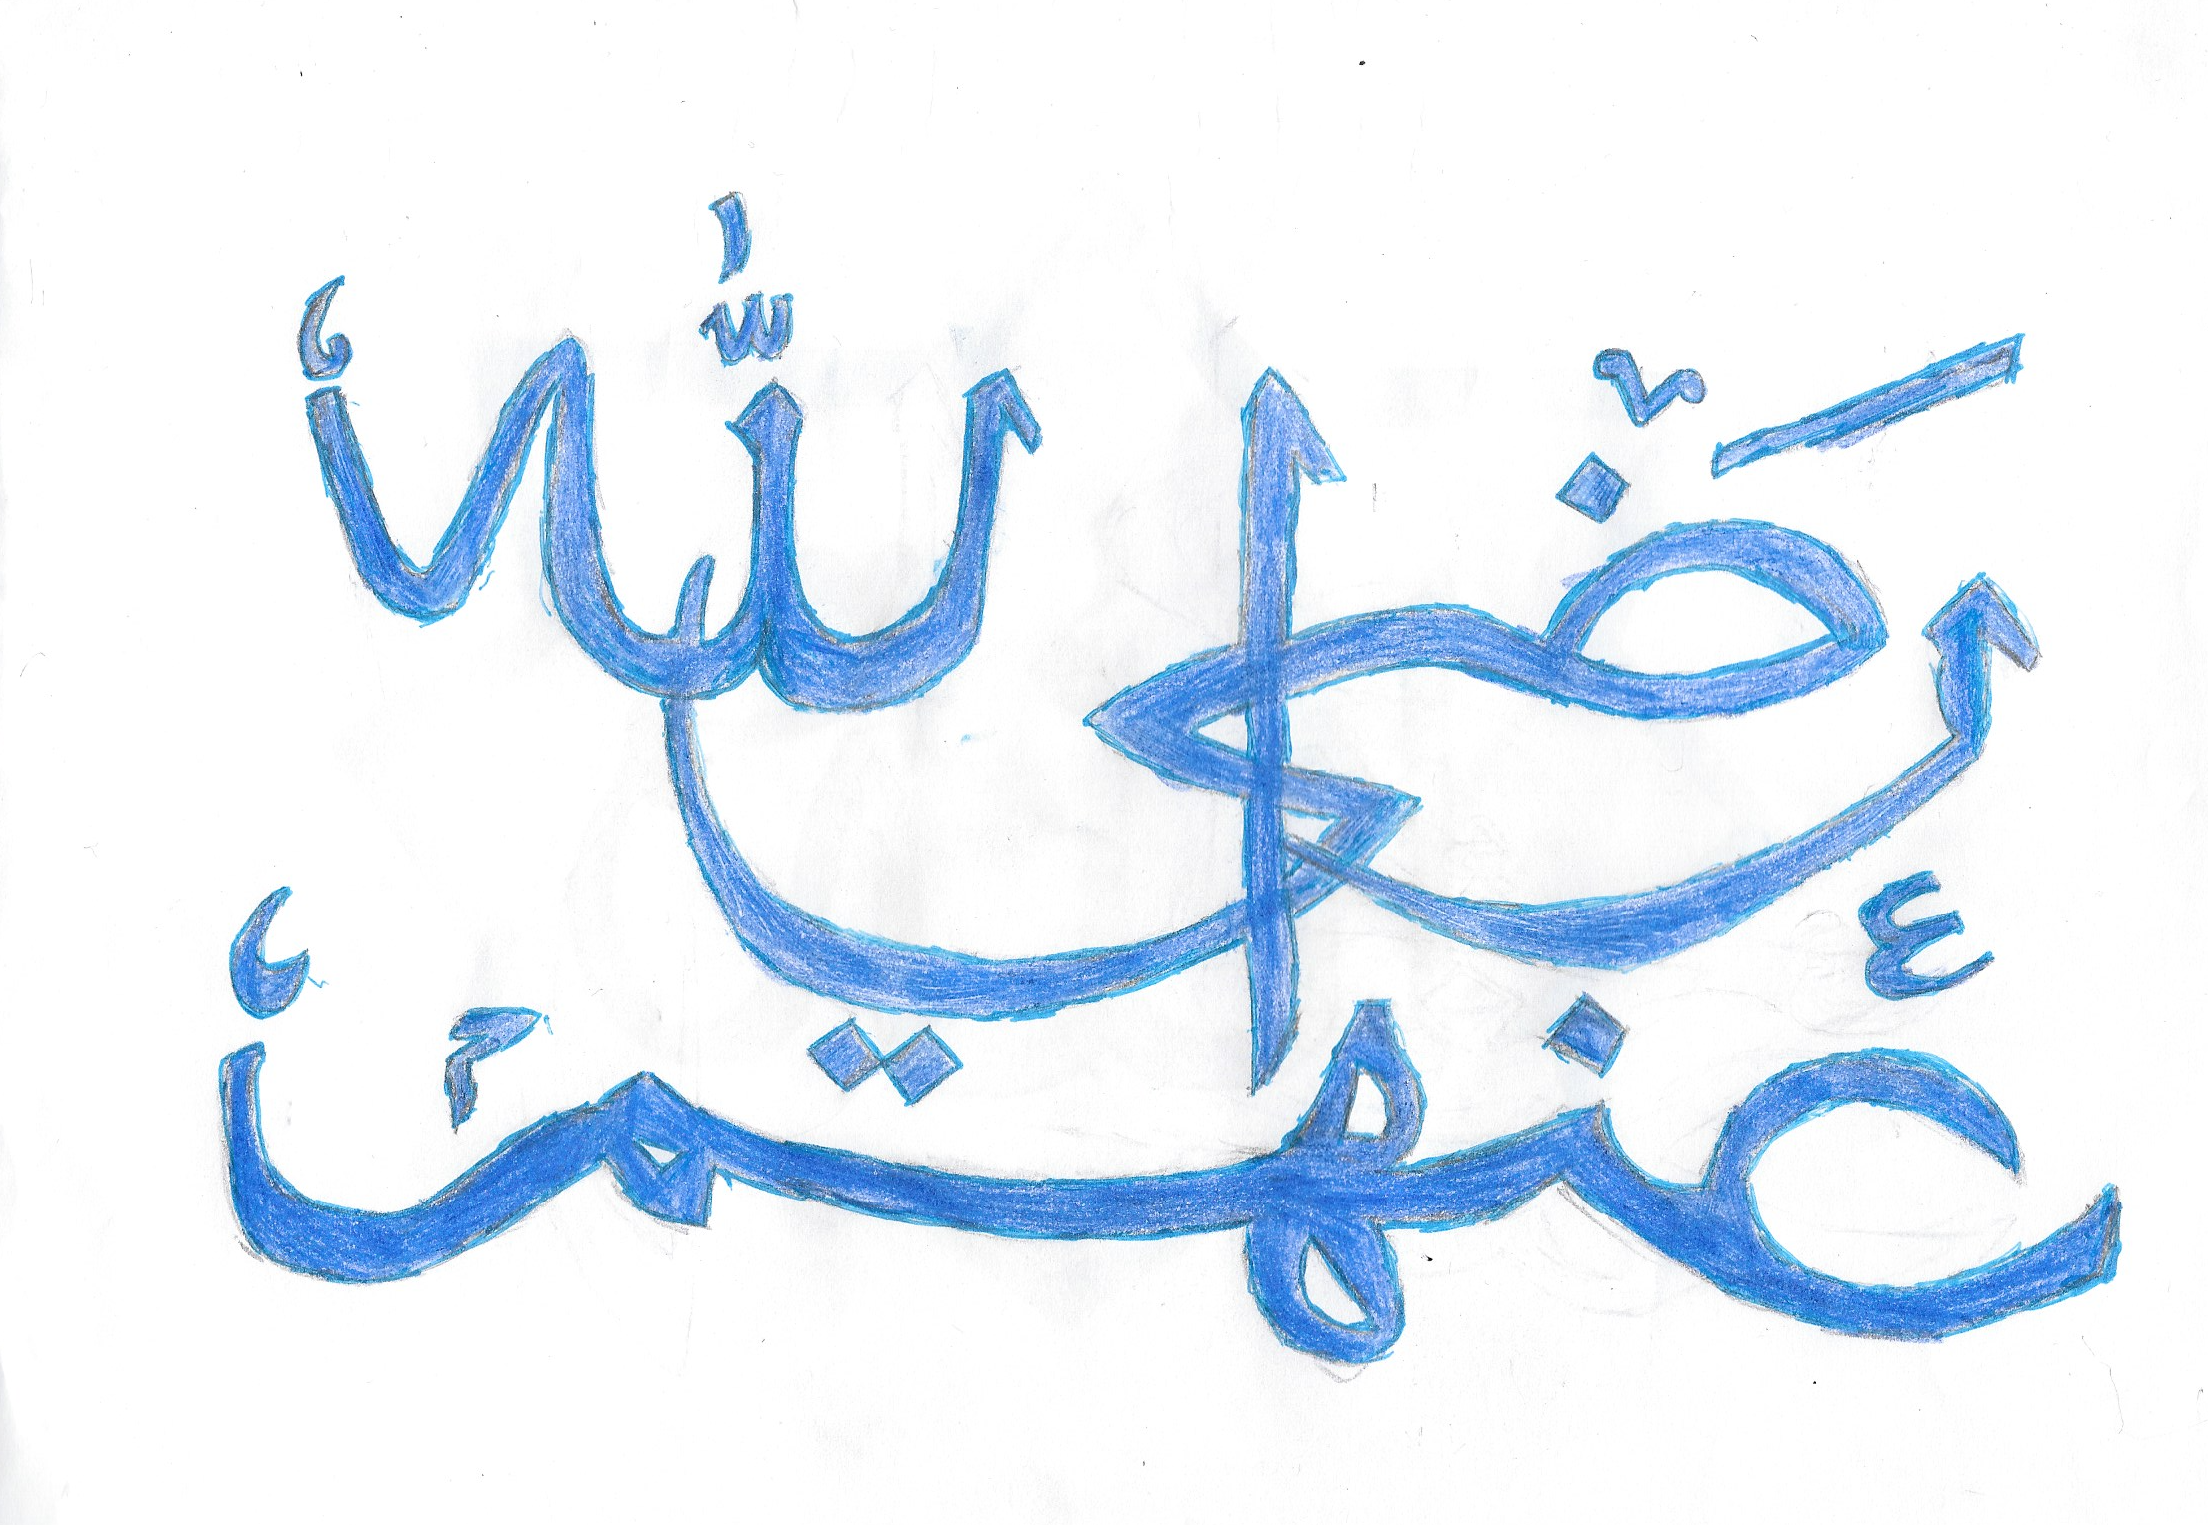 رضي الله
عنهم